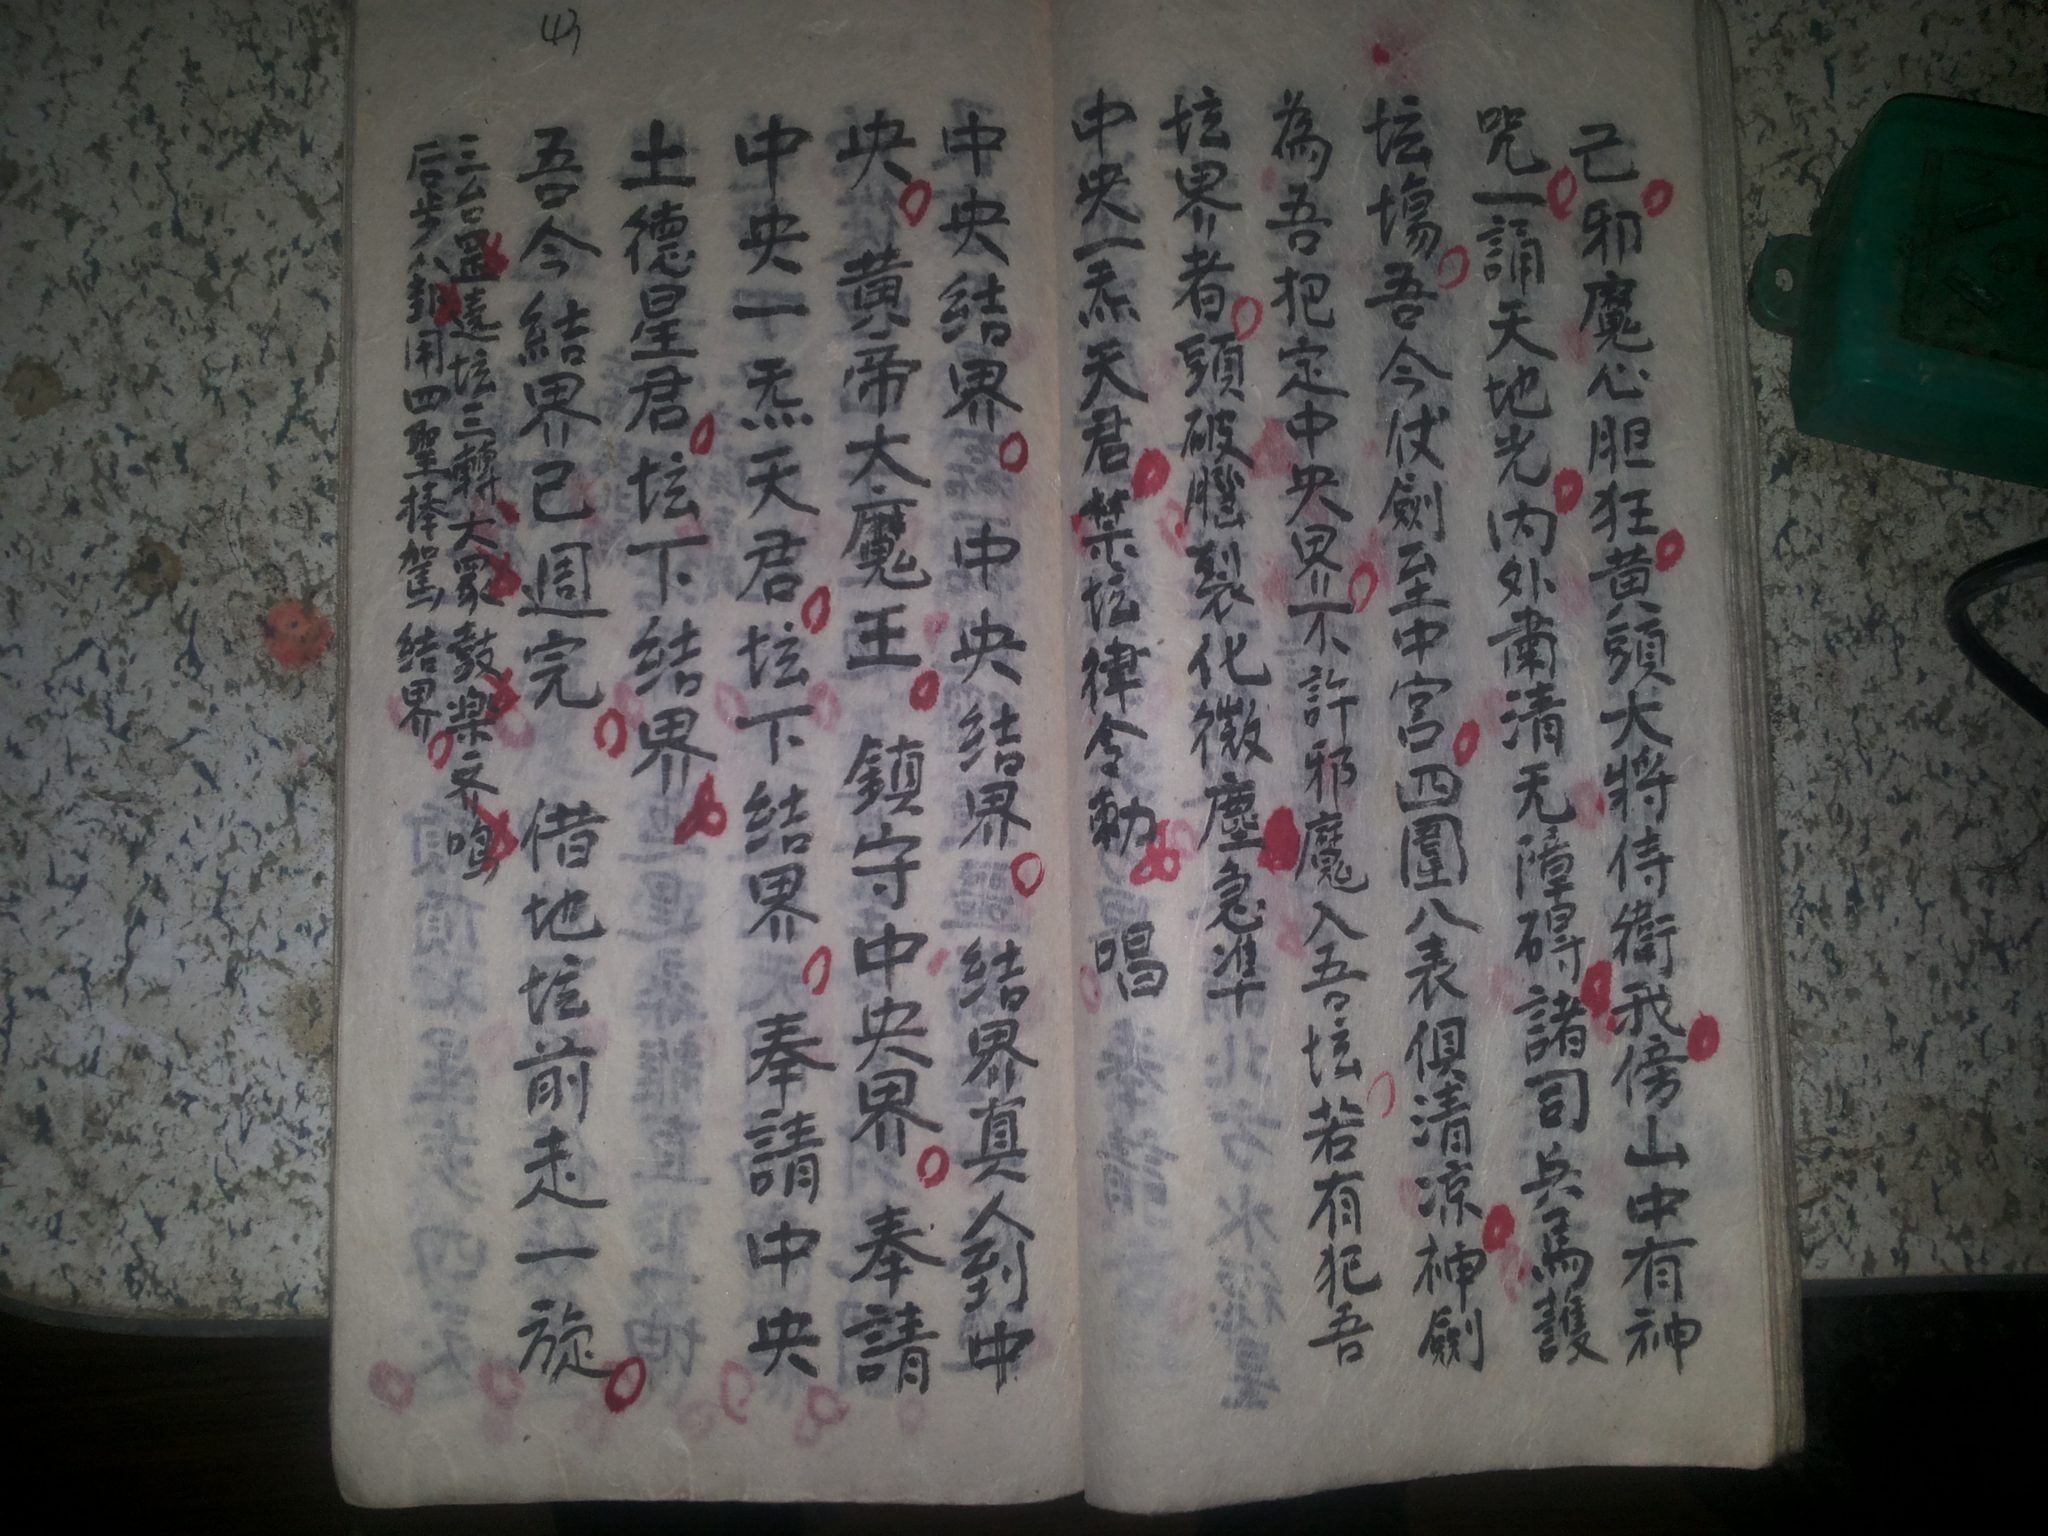 己邪魔心胆狂黄頭大將侍衛我傍山中有神
咒一誦天地光内外肅清无障碍諸司兵馬護
坛塲吾今仗劍至中宮四圍八表俱清凉神劍
為吾把定中央界不許邪魔入吾坛若有犯吾
坛界者頭破腦裂化微塵急準
中央一炁天君禁坛律令勅 唱
中央結界 中央結界 結界真人到中
央 黄帝大魔王 鎮守中央界 奉請
中央一炁天君坛下結界 奉請中央
土德星君坛下結界
吾今結界己週完 借地坛前走一旋
三台罡遶坛三轉大眾鼓樂齐喧
后步八卦用四聖捧駕結界